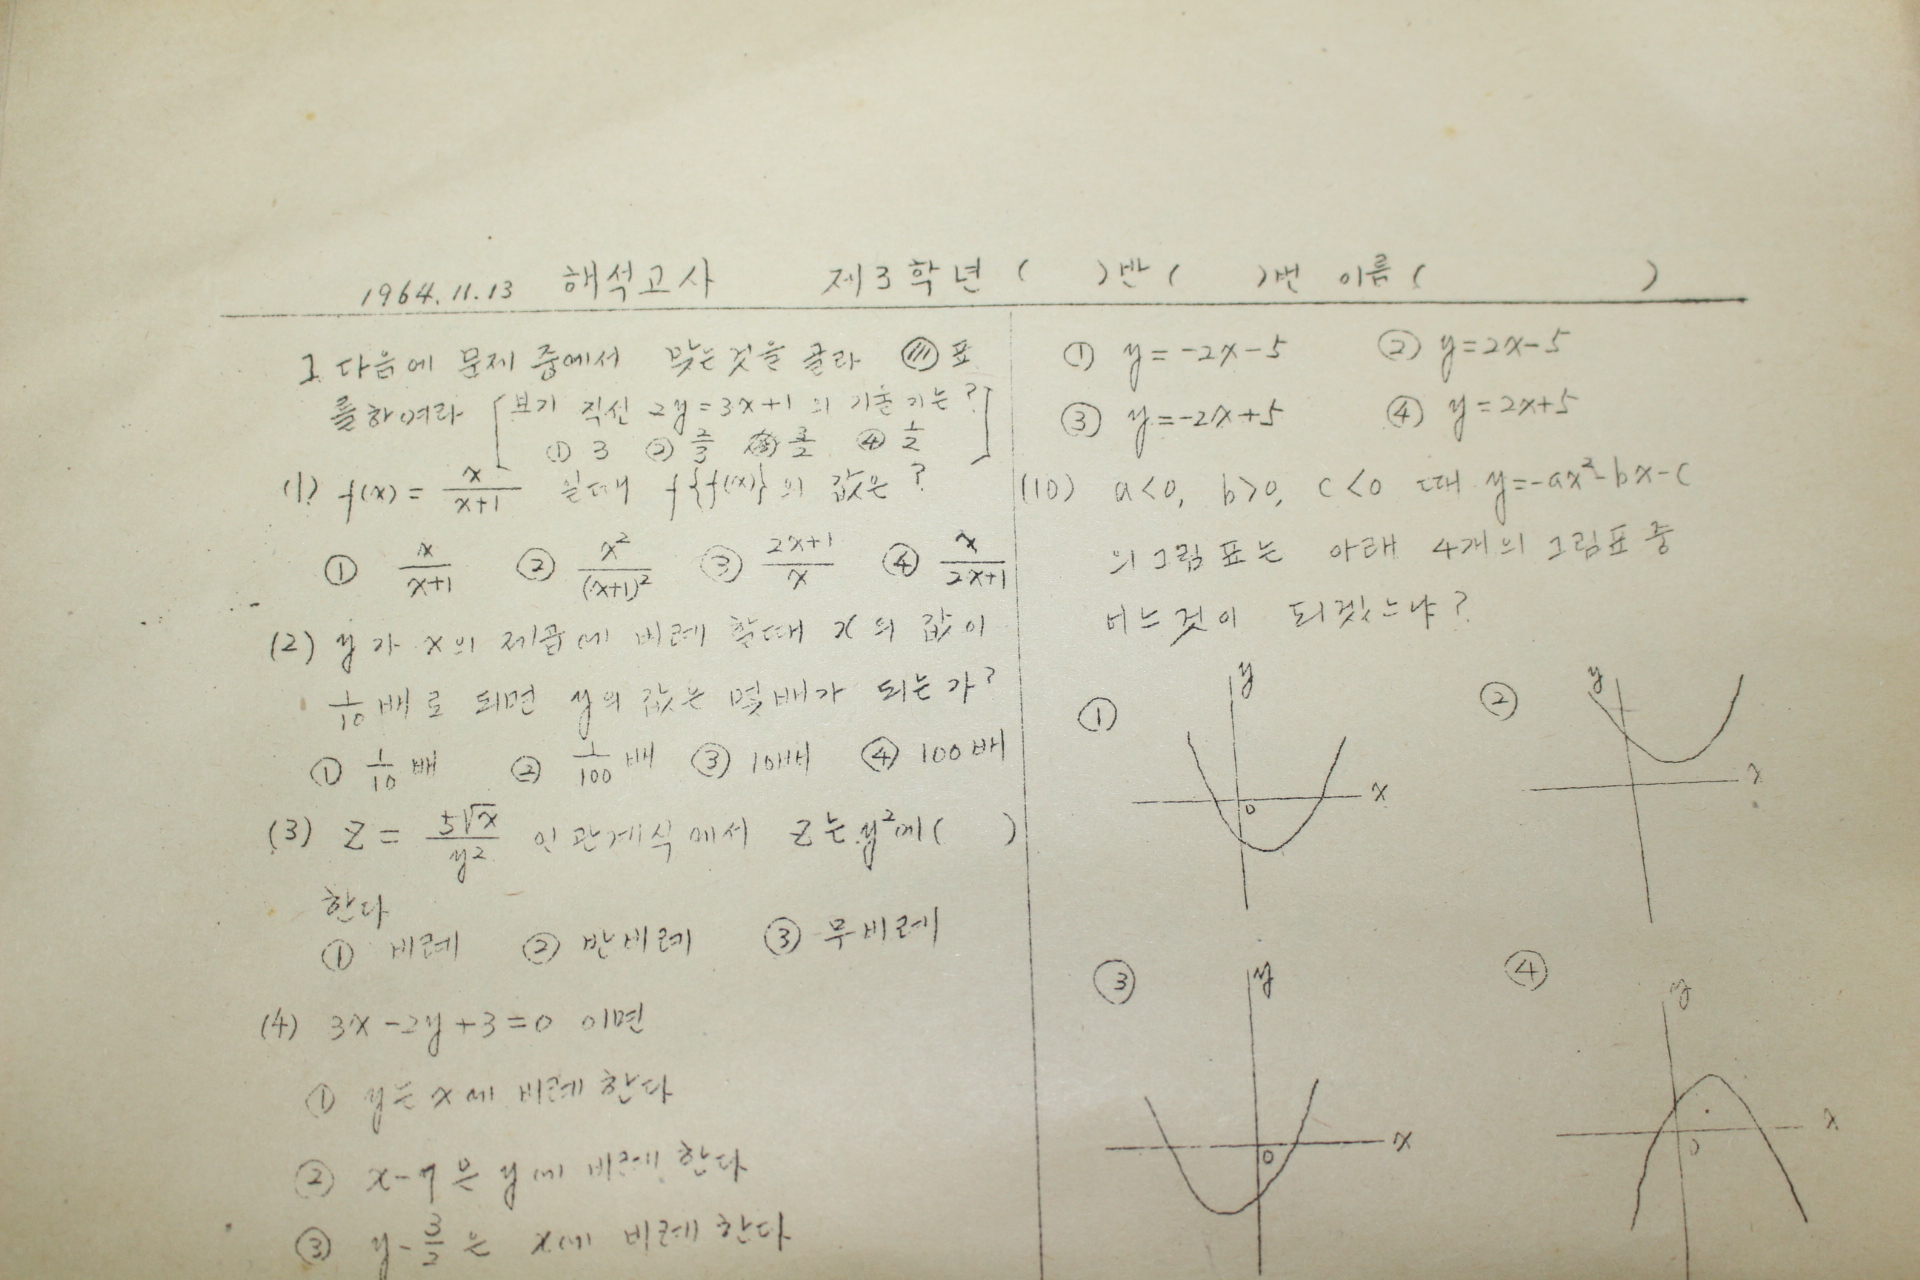 1964.11.13 해석고사 제3학년 ( )반 ( )번 이름 ( )
I. 다음에 문제 중에서 맞는것을 골라 표
를하여라 [보기 직선 2y=3x+1 의 기울기는?
① 3 ② 2/3 ③ 3/2 ④ 1/2 ]
(1) f(x) = x/(x+1) 일때 f{f(x)}의 값은?
① x/(x+1) ② x²/(x+1)² ③ (2x+1)/x ④ x/(2x+1)
(2) y가 x의 제곱에 비례 할때 x의 값이
1/10 배로 되면 y의 값은 몇배가 되는가?
① 1/10 배 ② 1/100 배 ③ 10배 ④ 100배
(3) Z = 5√x/y² 인 관계식에서 Z는 y²에 ( )
한다
① 비례 ② 반비례 ③ 무비례
(4) 3x-2y+3=0 이면
① y는 x에 비례한다
② x-7은 y에 비례한다
③ y-3/2 은 x에 비례한다
① y=-2x-5 ② y=2x-5
③ y=-2x+5 ④ y=2x+5
(10) a<0, b>0, c<0 때 y=-ax²-bx-c
의 그림표는 아래 4개의 그림표 중
어느것이 되겠느냐?
① y x 0
② y x
③ y x 0
④ y x 0